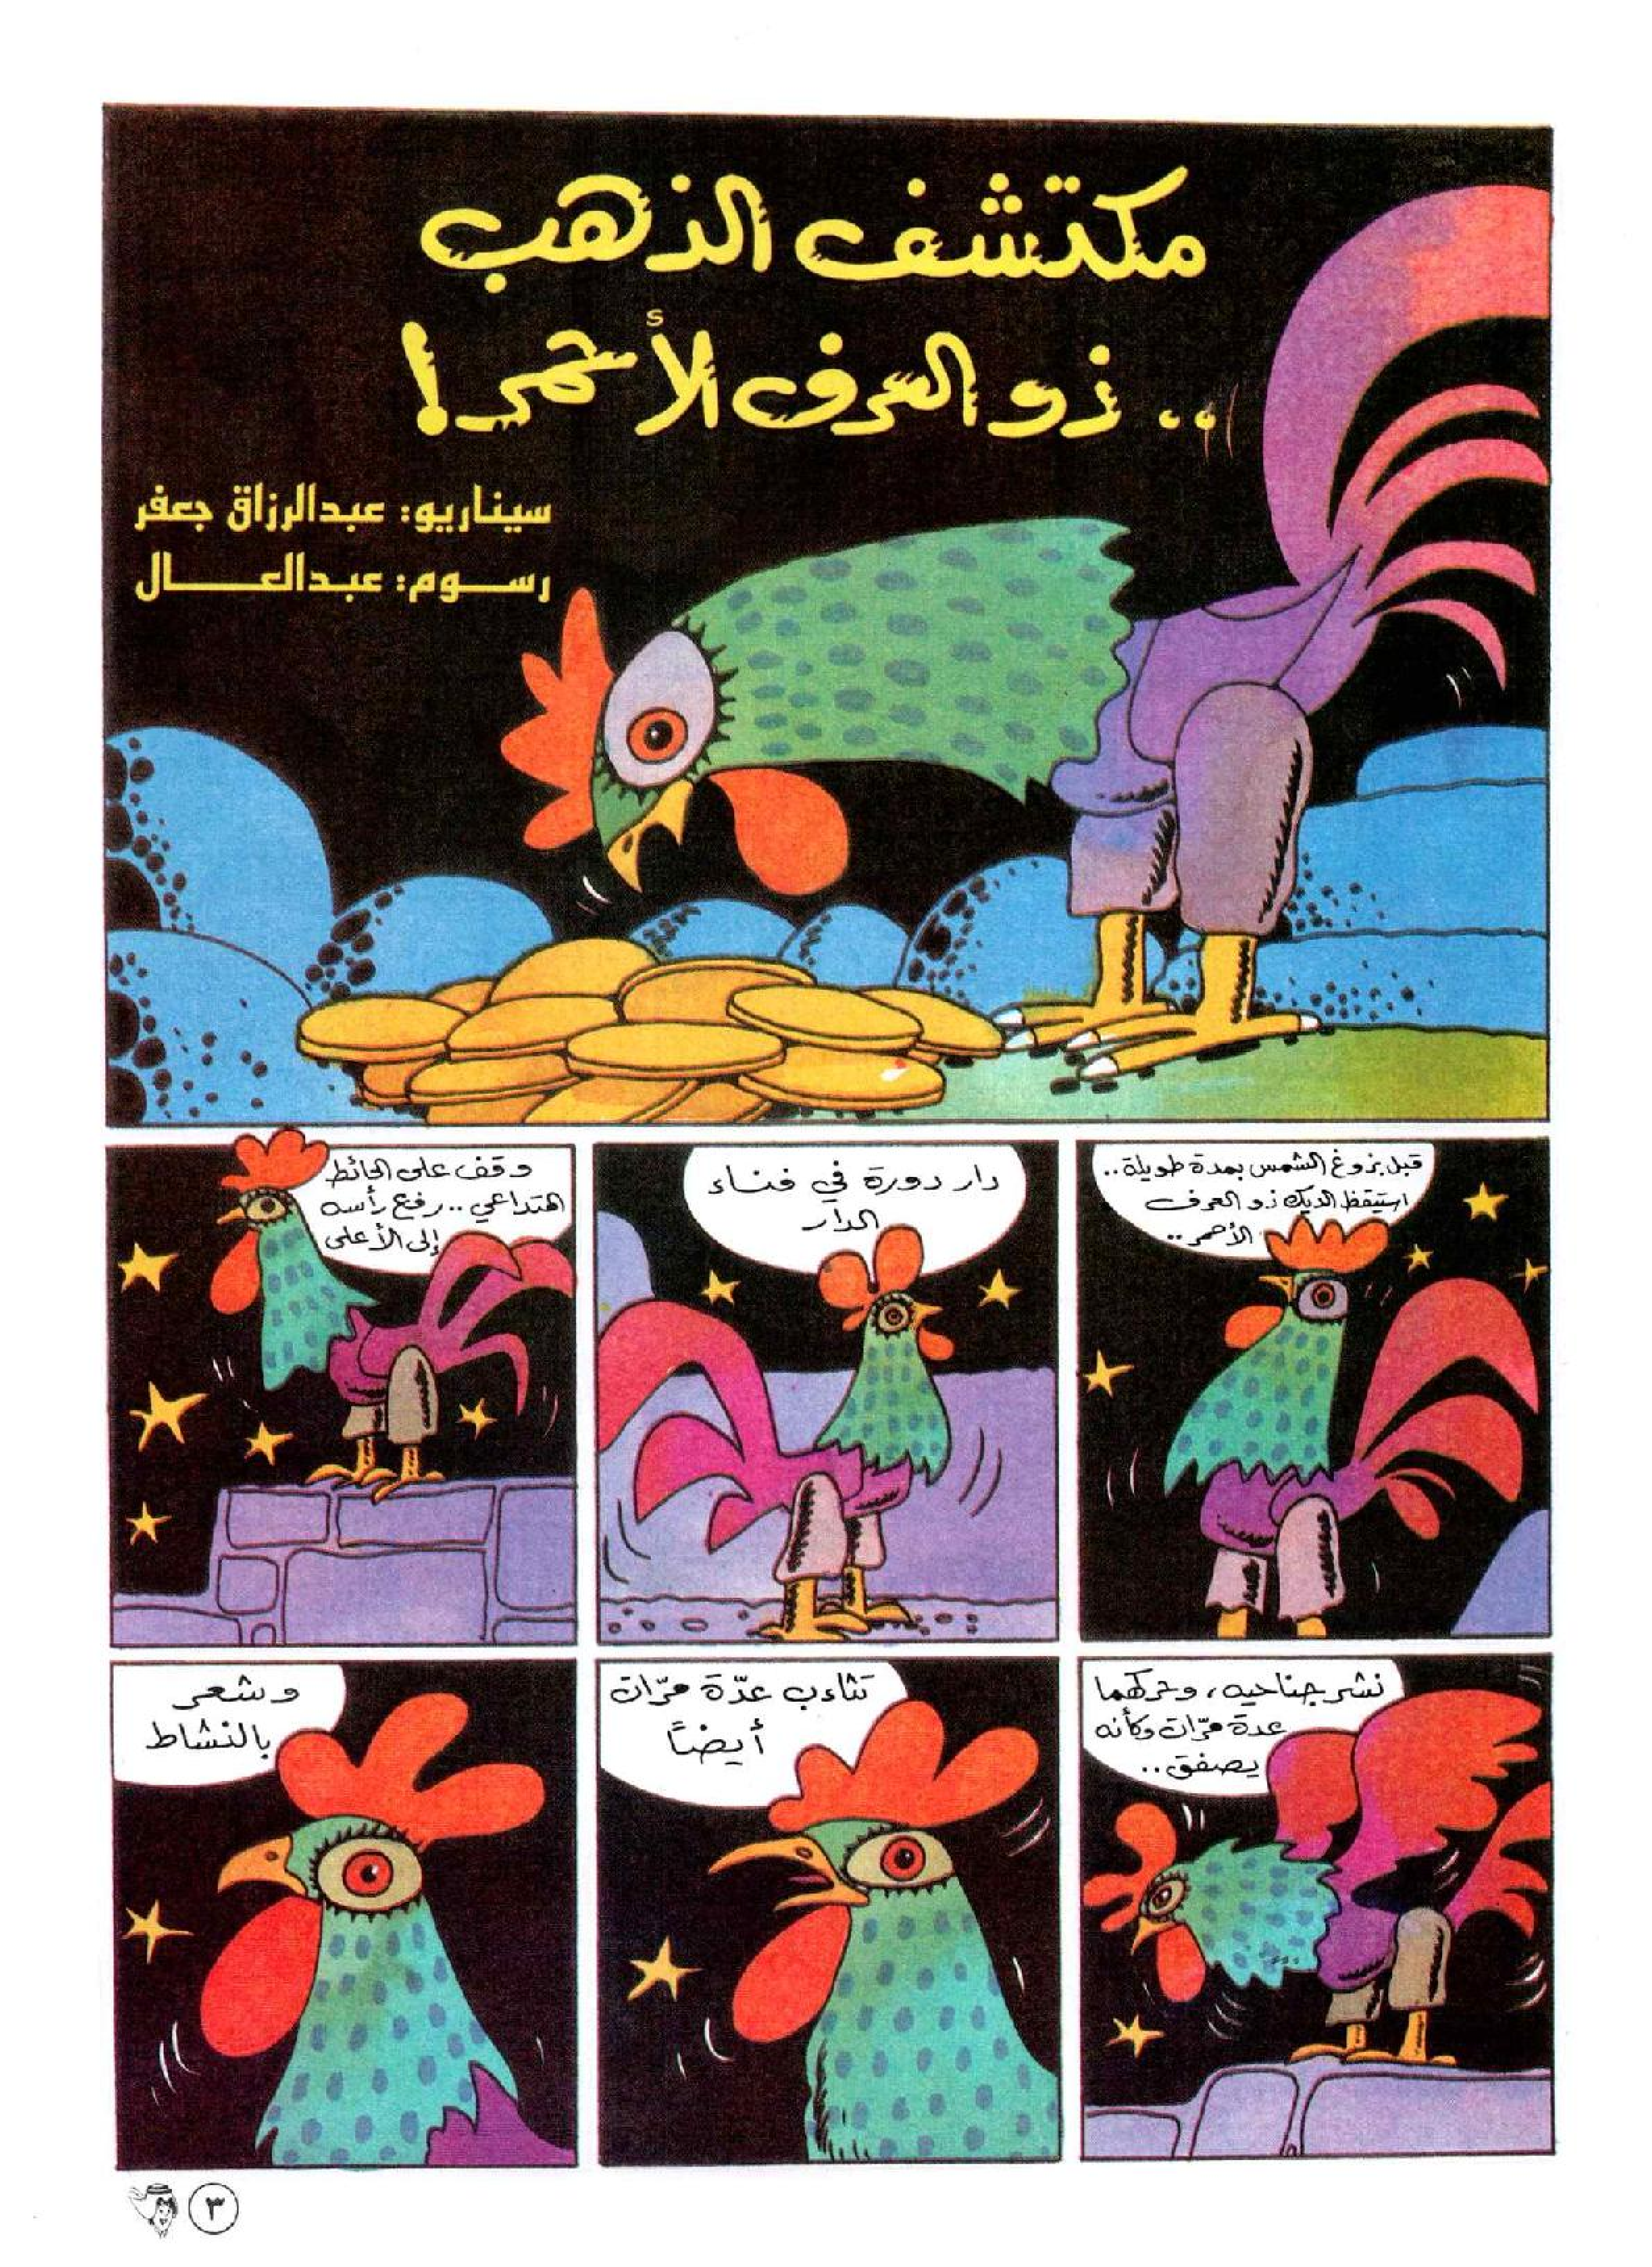 مكتشف الذهب
.. ذو العرف الأحمر!
سيناريو: عبدالرزاق جعفر
رســوم: عبدالعــــال
قبل بزوغ الشمس بمدة طويلة..
استيقظ الديك ذو العرف
الأحمر..
دار دورة في فناء
الدار
وقف على الحائط
المتداعي.. رفع رأسه
إلى الأعلى
نشر جناحيه، وحركهما
عدة مرّات وكأنه
يصفق..
تثاءب عدّة مرّات
أيضاً
وشعر
بالنشاط
٣